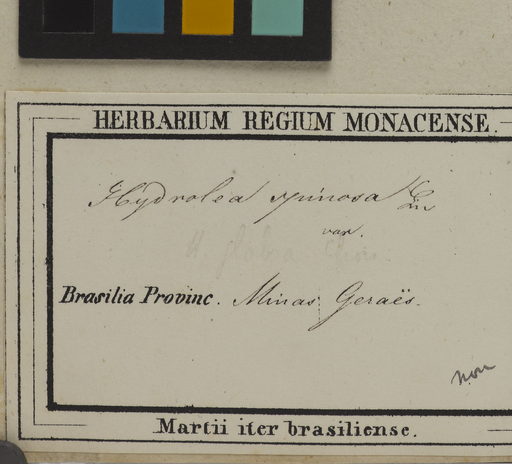 HERBARIUM REGIUM MONACENSE.
Hydrolea spinosa Lin
var.
Brasilia Provinc. Minas Geraës.
non
Martii iter brasiliense.